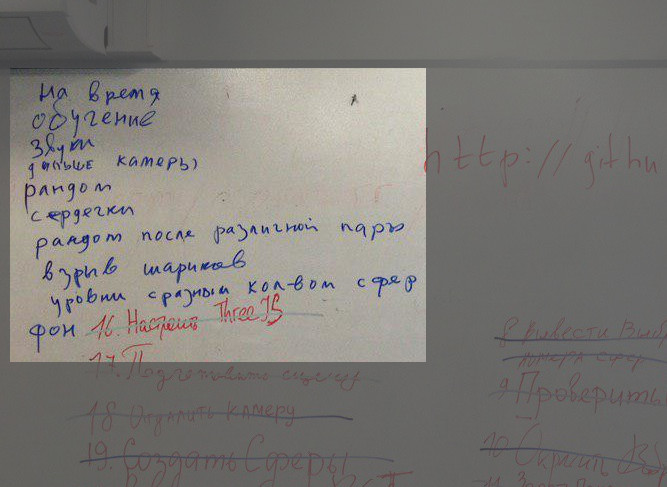 На время
обучение
звуки
дальше камеры
рандом
сердечки
рандом после различной пары
взрыв шариков
уровни с разным кол-вом сфер
фон 16. Настроить ThreeJS
17. Подготовить сцену
18 Отдалить камеру
19. Создать Сферы
http://githu
8 Вывести
номера сфер
9 Проверить
10 Скрипт
11